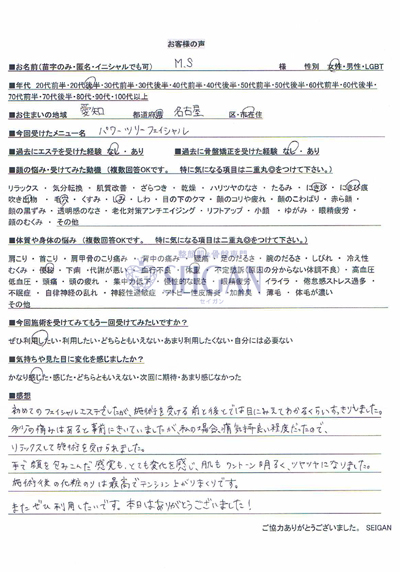 お客様の声
■お名前(苗字のみ・匿名・イニシャルでも可) M.S 様 性別 女性・男性・LGBT
■年代 20代前半・20代後半・30代前半・30代後半・40代前半・40代後半・50代前半・50代後半・60代前半・60代後半・
70代前半・70代後半・80代・90代・100代以上
■お住まいの地域 愛知 都道府県 名古屋 区・市在住
■今回受けたメニュー名 パワーツリーフェイシャル
■過去にエステを受けた経験 なし・あり ■過去に骨盤矯正を受けた経験 なし・あり
■顔の悩み・受けてみた動機 (複数回答OKです。 特に気になる項目は二重丸◎をつけて下さい。)
リラックス ・ 気分転換 ・ 肌質改善 ・ ざらつき ・ 乾燥 ・ ハリツヤのなさ ・ たるみ ・ にきび ・ にきび痕
吹き出物 ・ 毛穴 ・ くすみ ・ しみ ・ しわ ・ 目の下のクマ ・ 顔のコリや疲れ ・ 顔のこわばり ・ 赤ら顔 ・
顔の黒ずみ ・ 透明感のなさ ・ 老化対策アンチエイジング ・ リフトアップ ・ 小顔 ・ ゆがみ ・ 眼精疲労 ・
顔のむくみ ・ その他
■体質や身体の悩み (複数回答OKです。 特に気になる項目は二重丸◎をつけて下さい。)
肩こり ・ 首こり ・ 肩甲骨のこり痛み ・ 背中の痛み ・ 腰痛 ・ 足のだるさ ・ 腕のだるさ ・ しびれ ・ 冷え性
むくみ ・ 便秘 ・ 下痢 ・ 代謝が悪い ・ 血行不良 ・ 体重 ・ 不定愁訴(原因の分からない体調不良) ・ 高血圧
低血圧 ・ 頭痛 ・ 頭の疲れ ・ 集中力低下 ・ 慢性的な眠さ ・ 眼精疲労 ・ イライラ ・ 倦怠感ストレス過多
・ 不眠症 ・ 自律神経の乱れ ・ 神経性過敏症 ・ アトピー性皮膚炎 ・ 加齢臭 ・ 薄毛 ・ 体毛が濃い
その他
SEIGAN
セイガン
■今回施術を受けてみてもう一回受けてみたいですか?
ぜひ利用したい・利用したい・どちらともいえない・あまり利用したくない・自分には必要ない
■気持ちや見た目に変化を感じましたか?
かなり感じた・感じた・どちらともいえない・次回に期待・あまり感じなかった
■感想
初めてのフェイシャルエステでしたが、施術を受ける前と後とでは目にみえてわかるくらいすっきりしました。
多少の痛みはあると事前にきいていましたが、私の場合、痛気持良い程度だったので、
リラックスして施術を受けられました。
手で顔を包みこんだ感覚も、とても変化を感じ、肌もワントーン明るく、ツヤツヤになりました。
施術後の化粧のりは最高でテンション上がりまくりです。
またぜひ利用したいです。本日はありがとうございました!
ご協力ありがとうございました。 SEIGAN